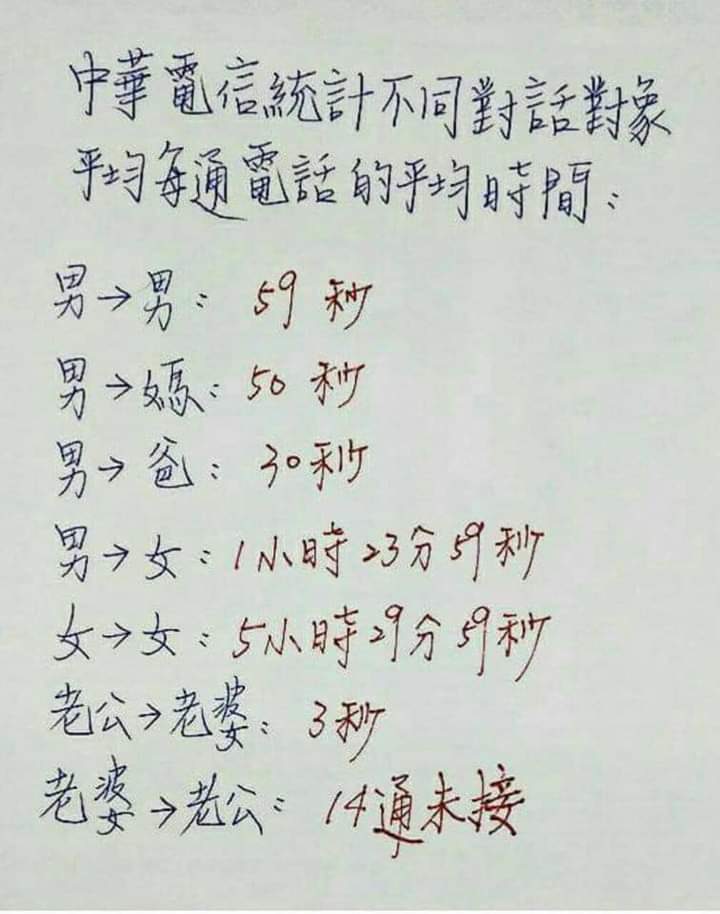 中華電信統計不同對話對象
平均每通電話的平均時間：
男→男： 59 秒
男→媽： 50 秒
男→爸： 30秒
男→女：1小時23分59秒
女→女：5小時29分59秒
老公→老婆： 3秒
老婆→老公： 14通未接